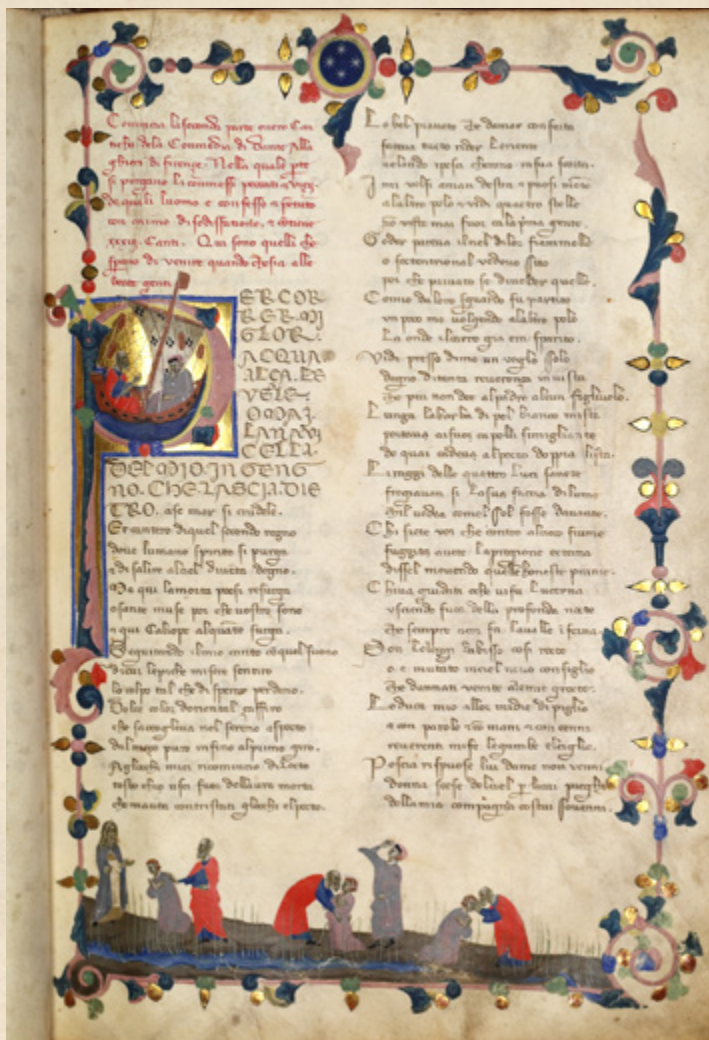 Comincia la seconda parte overo Can
ticha dela Commedia di Dante Alla
ghieri di firenze. Nella quale pte
si purgano li commessi peccati e vizij
de quali luomo e confesso e pentuto
con animo di sodisfazione. e contiene
xxxiij. Canti. Qui sono quelli che
sperano di venire quando chesia alle
beate genti
PER COR
RER MI
GLOR.
ACQUA
ALÇA. LE
VELE.
OMAI.
LANAVI
CELLA.
DELMIO. INGENG
NO. CHE LASCIA DIE
TRO. ase mar si crudele.
Et cantero diquel secondo regno
dove lumano spirito si purga
e di salire alciel diventa degno.
Ma qui lamorta poesi resurga
o sante muse poi che vostro sono
e qui Caliope alquanto surga.
Seguitando ilmio canto co quel suono
di cui le piche misere sentiro
lo colpo tal che disperar perdono.
Dolce color doriental zaffiro
che saccoglieva nel sereno aspecto
del mezo puro infino alprimo giro.
Agliochi miei ricomincio dilecto
tosto chio usci fuor dellaura morta
che mavea contristati gliochi elpecto.
Lo bel pianeto che damar conforta
faceva tucto rider loriente
velando i pesci cherano in sua scorta.
I mi volsi aman destra e puosi mente
alaltro polo e vidi quattro stelle
non viste mai fuor cala prima gente.
Goder pareva il ciel di lor fiammelle
o septentrional vedovo sito
poi che privato se di veder quelle.
Comio daloro sguardo fu partito
un poco me volgendo alaltro polo
la onde il carro gia era sparito.
Vidi presso dime un veglio solo
degno ditanta reverenza in vista
che piu non dee alpadre alcun figliuolo.
Lunga labarba e di pel bianco mista
portava asuoi capelli simigliante
de quai cadeva alpecto doppia lista.
Li raggi delle quattro luci sancte
fregiavan si lasua faccia di lume
chil vedea comel sol fosse davante.
Chi siete voi che contro alcieco fiume
fuggito avete lapregione eterna
dissel movendo quelle honeste piume.
Chiva guidati o che vi fu lucerna
uscendo fuor della profonda nocte
che sempre nera fa lavalle inferna.
Son leleggi dabisso cosi rotte
o e mutato inciel novo consiglio
che dannati venite alemie grocte.
Lo duca mio allor midie di piglio
e con parole e con mani e con cenni
reverenti mi fe le gambe el ciglio.
Poscia rispuose lui dame non venni
donna scese del ciel p li cui prieghi
della mia compagnia costui sovenni.